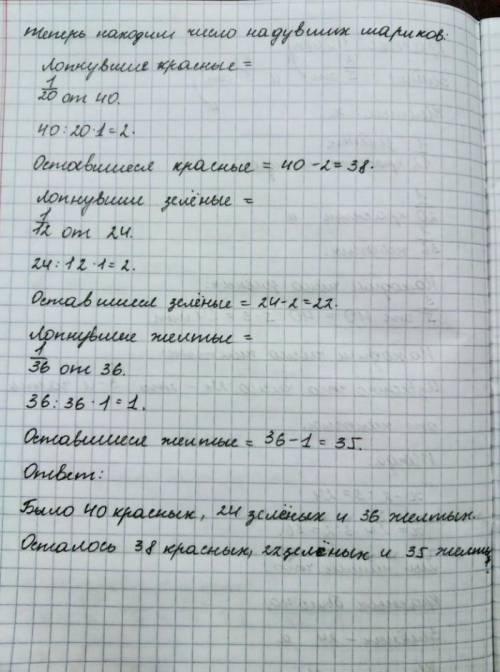 Теперь находим число надувших шариков:
Лопнувшие красные =
1/20 от 40.
40 : 20 · 1 = 2.
Оставшиеся красные = 40 - 2 = 38.
Лопнувшие зелёные =
1/12 от 24.
24 : 12 · 1 = 2.
Оставшиеся зелёные = 24 - 2 = 22.
Лопнувшие желтые =
1/36 от 36.
36 : 36 · 1 = 1.
Оставшиеся желтые = 36 - 1 = 35.
Ответ:
Было 40 красных, 24 зелёных и 36 желтых.
Осталось 38 красных, 22 зелёных и 35 желты